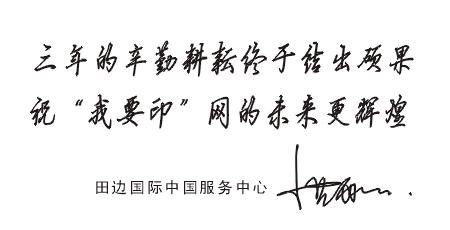 三年的辛勤耕耘终于结出硕果
祝“我要印”网的未来更辉煌
田边国际中国服务中心